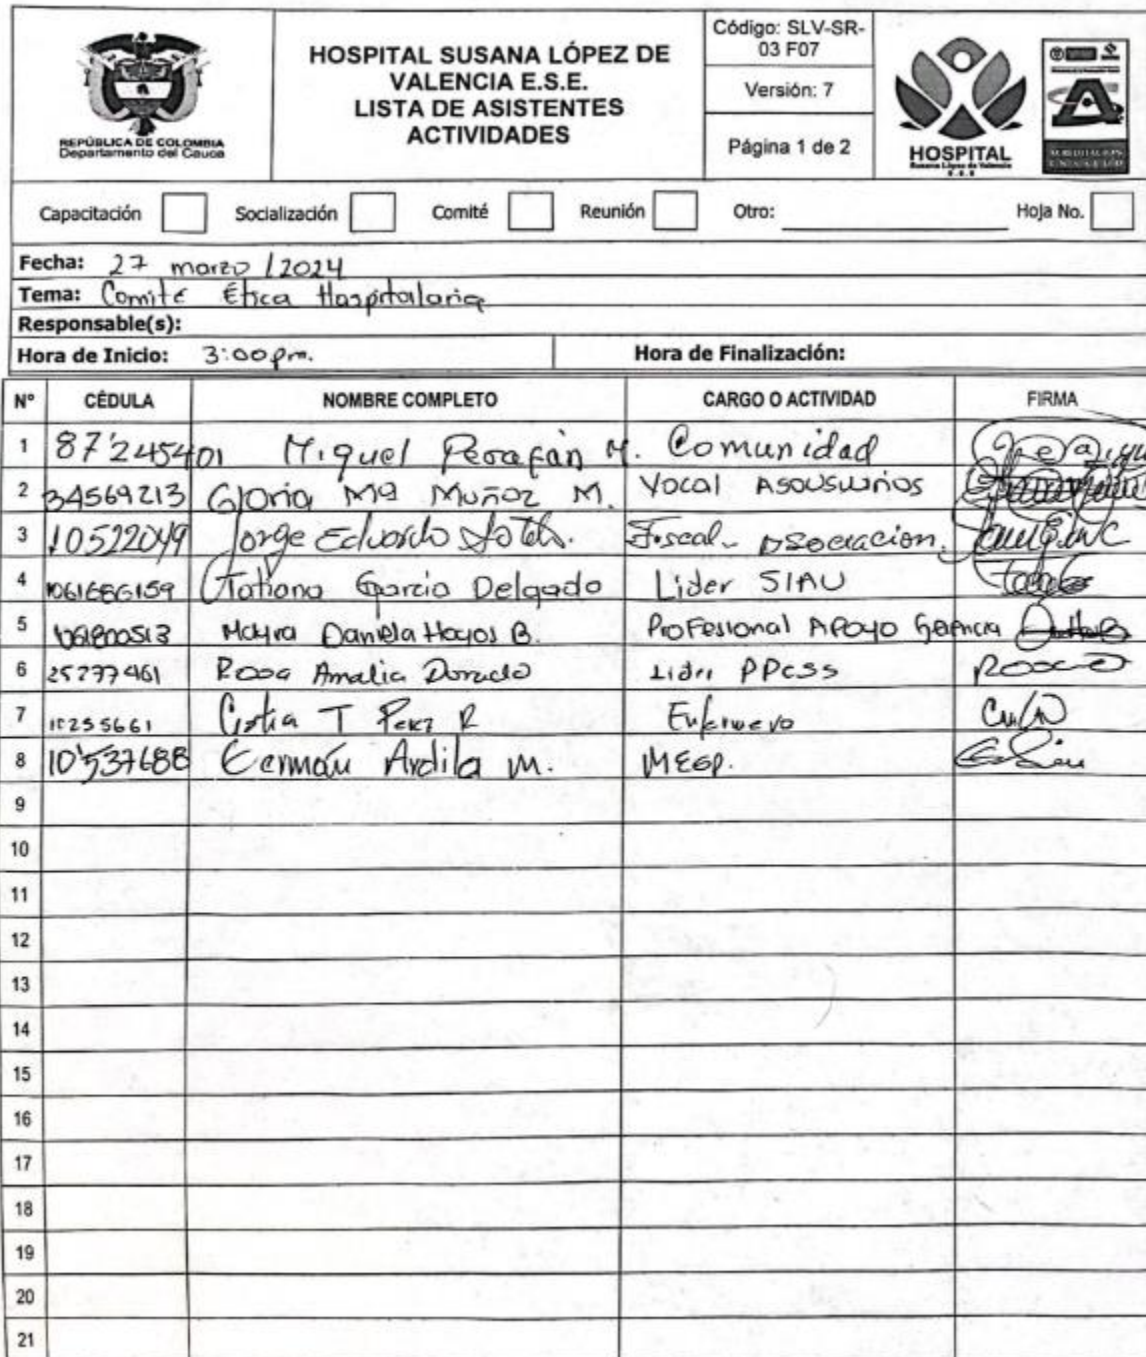 REPÚBLICA DE COLOMBIA
Departamento del Cauca
HOSPITAL SUSANA LÓPEZ DE
VALENCIA E.S.E.
LISTA DE ASISTENTES
ACTIVIDADES
Código: SLV-SR-
03 F07
Versión: 7
Página 1 de 2
HOSPITAL
Susana López de Valencia
E.S.E
ACREDITACIÓN
EN SALUD
Capacitación Socialización Comité Reunión Otro: Hoja No.
Fecha: 27 marzo / 2024
Tema: Comité Ética Hospitalaria
Responsable(s):
Hora de Inicio: 3:00 pm. Hora de Finalización:
Nº CÉDULA NOMBRE COMPLETO CARGO O ACTIVIDAD FIRMA
1 87'245401 Miguel Perafán M. Comunidad
2 34569213 Gloria Mª Muñoz M. Vocal
3 10522049 Jorge Eduardo Fiscal - Asociacion.
4 1061686159 Tatiana Garcia Delgado Lider SIAU
5 Mayra Daniela Hoyos B. Profesional Apoyo Gerencia
6 25277461 Rosa Amalia Dorado Lider PPCSS
7 10255661 T Perez R Enfermero
8 10'537688 Germán Ardila M.
9
10
11
12
13
14
15
16
17
18
19
20
21